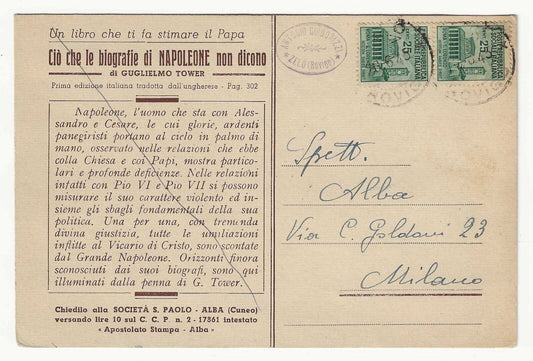 Un libro che ti fa stimare il Papa
Ciò che le biografie di NAPOLEONE non dicono
di GUGLIELMO TOWER
Prima edizione italiana tradotta dall'ungherese - Pag. 302
Napoleone, l'uomo che sta con Ales-
sandro e Cesare, le cui glorie, ardenti
panegiristi portano al cielo in palmo di
mano, osservato nelle relazioni che ebbe
colla Chiesa e coi Papi, mostra particola-
ri e profonde deficienze. Nelle relazioni
infatti con Pio VI e Pio VII si possono
misurare il suo carattere violento ed in-
sieme gli sbagli fondamentali della sua
politica. Una per una, con tremenda
divina giustizia, tutte le umiliazioni
inflitte al Vicario di Cristo, sono scontate
dal Grande Napoleone. Orizzonti finora
sconosciuti dai suoi biografi, sono qui
illuminati dalla penna di G. Tower.
Chiedilo alla SOCIETÀ S. PAOLO - ALBA (Cuneo)
versando lire 10 sul C. C. P. n. 2-17861 intestato
« Apostolato Stampa - Alba »
ANTONIO
ZELO (ROVIGO)
25
25
ROVIGO
Spett.
Alba
Via C. Goldoni 23
Milano